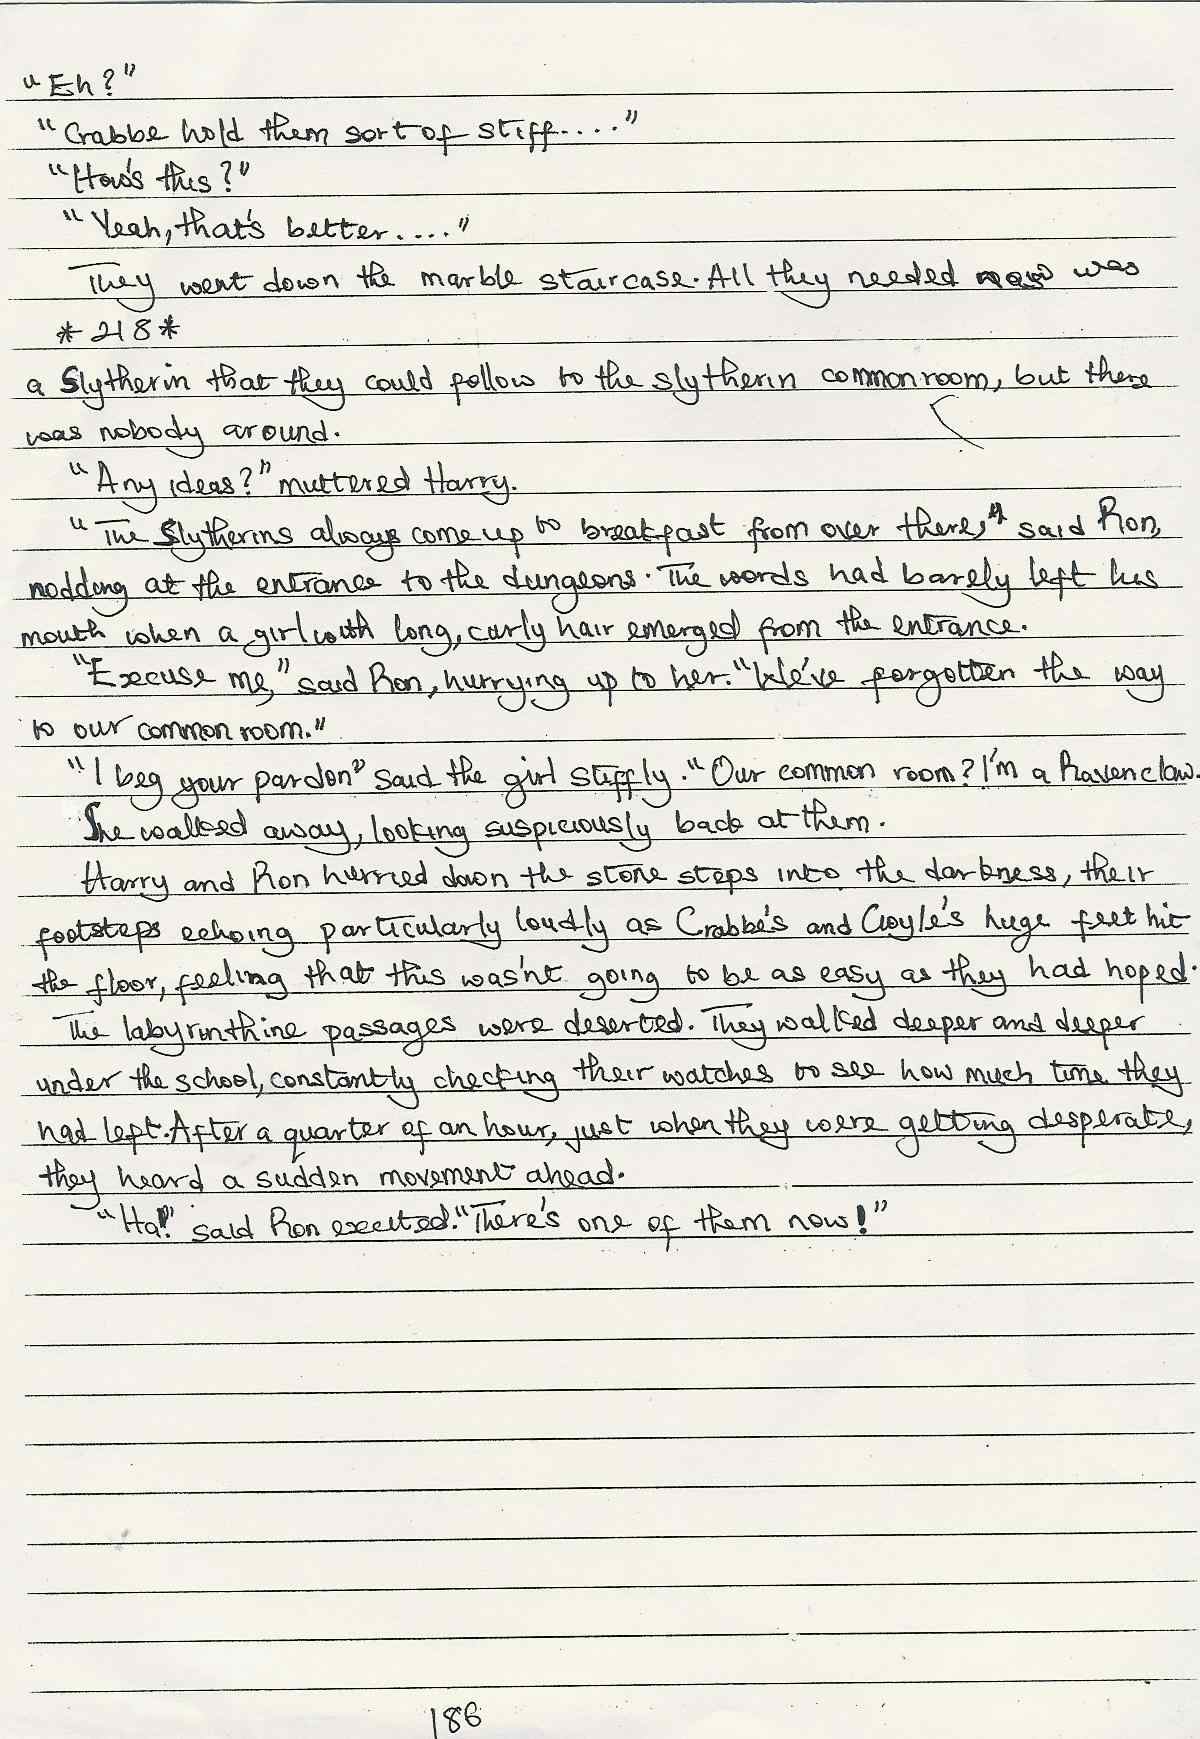 "Eh?"
"Crabbe hold them sort of stiff...."
"How's this?"
"Yeah, that's better...."
They went down the marble staircase. All they needed now was
*218*
a Slytherin that they could follow to the slytherin common room, but there
was nobody around.
"Any ideas?" muttered Harry.
"The Slytherins always come up to breakfast from over there," said Ron,
nodding at the entrance to the dungeons. The words had barely left his
mouth when a girl with long, curly hair emerged from the entrance.
"Excuse me," said Ron, hurrying up to her. "We've forgotten the way
to our common room."
"I beg your pardon" said the girl stiffly. "Our common room? I'm a Ravenclaw.
She walked away, looking suspiciously back at them.
Harry and Ron hurried down the stone steps into the darkness, their
footsteps echoing particularly loudly as Crabbe's and Goyle's huge feet hit
the floor, feeling that this was'nt going to be as easy as they had hoped.
The labyrinthine passages were deserted. They walked deeper and deeper
under the school, constantly checking their watches to see how much time they
had left. After a quarter of an hour, just when they were getting desperate,
they heard a sudden movement ahead.
"Ha!" said Ron excited. "There's one of them now!"
186